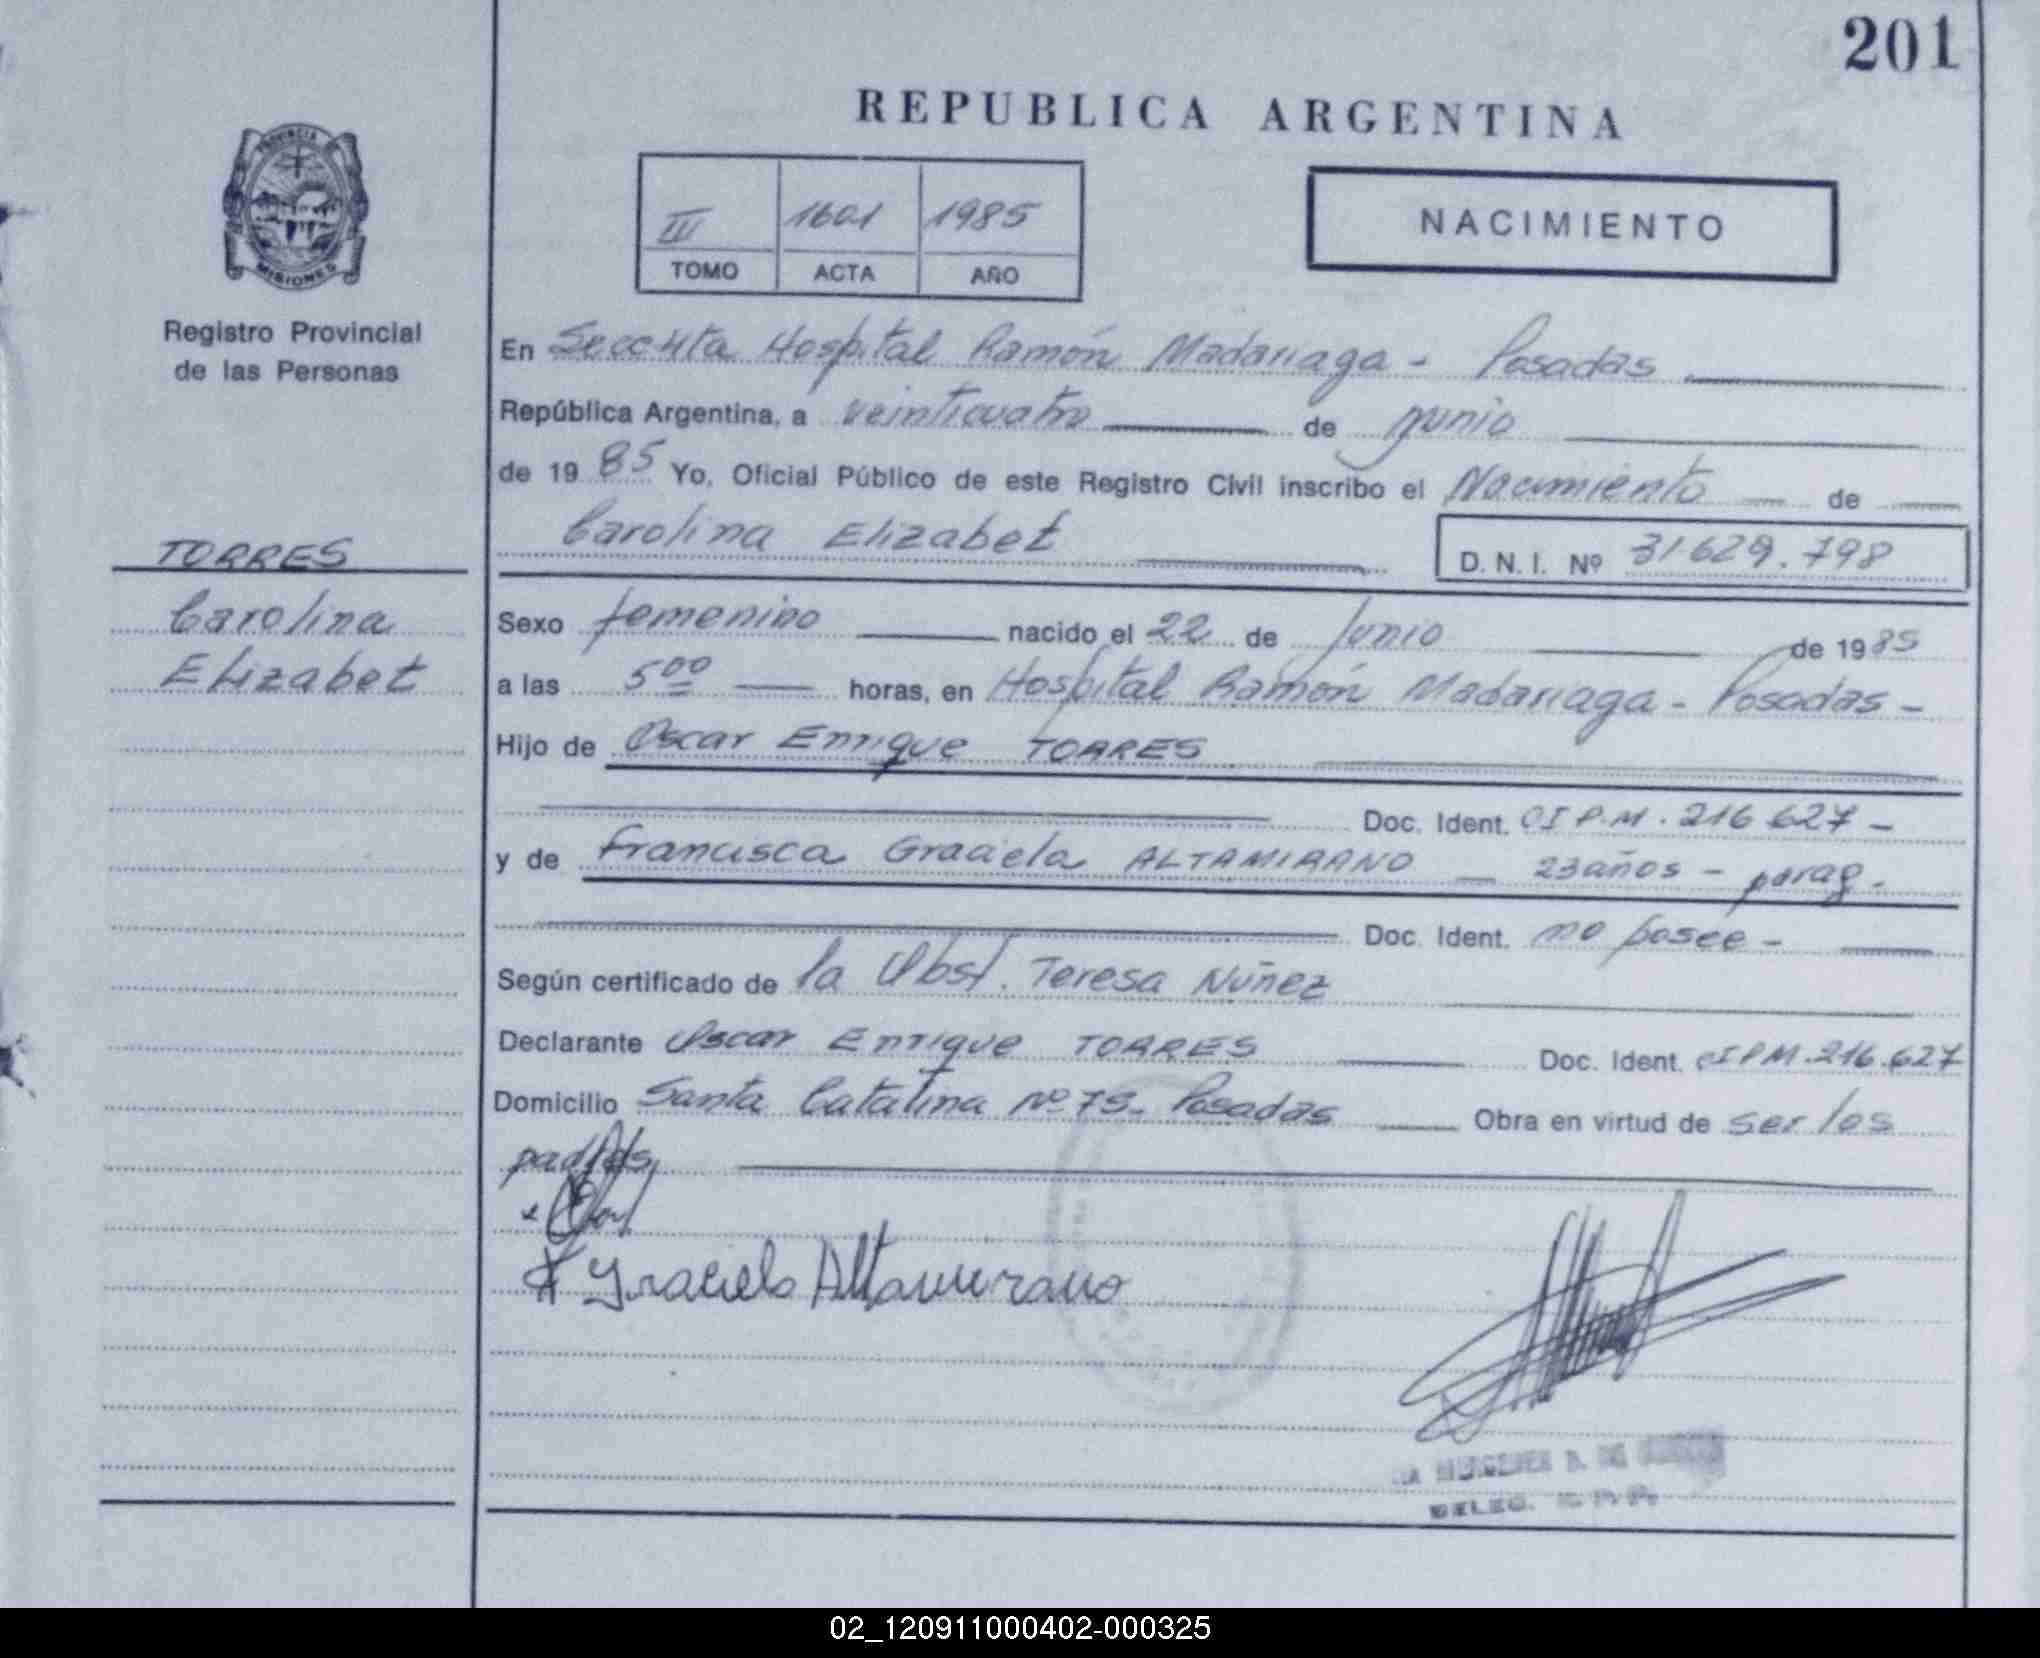 201
REPUBLICA ARGENTINA
PROVINCIA DE
MISIONES
Registro Provincial
de las Personas
III 1601 1985
TOMO ACTA AÑO
NACIMIENTO
En Hospital Ramón Madariaga - Posadas
República Argentina, a veinticuatro de junio
de 1985 Yo, Oficial Público de este Registro Civil inscribo el Nacimiento de
Carolina Elizabet
D. N. I. Nº 31.629.798
TORRES
Carolina
Elizabet
Sexo femenino nacido el 22 de Junio de 1985
a las 500 horas, en Hospital Ramón Madariaga - Posadas -
Hijo de Oscar Enrique TORRES
Doc. Ident. CIPM. 216 627 -
y de Francisca Graciela ALTAMIRANO 23 años - parag.
Doc. Ident. no posee -
Según certificado de la Obst. Teresa Núñez
Declarante Oscar Enrique TORRES Doc. Ident. CIPM. 216.627
Domicilio Santa Catalina Nº 75- Posadas Obra en virtud de ser los
padres
Graciela Altamirano
DELEG.
02_120911000402-000325